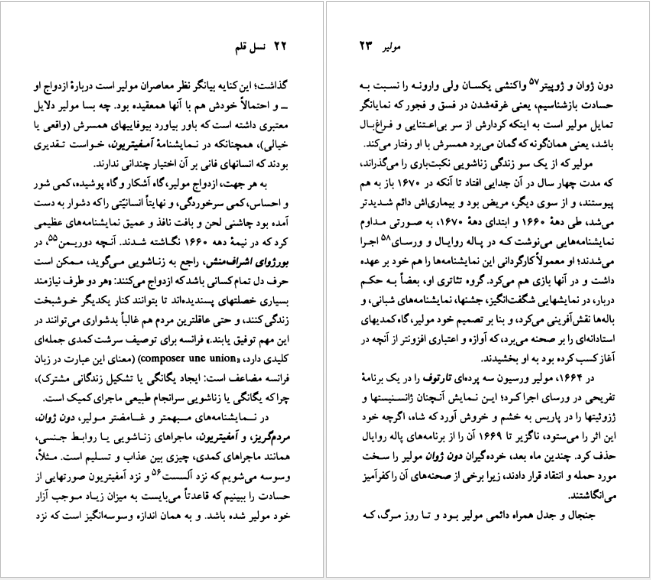 ۲۲ نسل قلم
گذاشت؛ این کنایه بیانگر نظر معاصران مولیر است دربارهٔ ازدواج او
ــ و احتمالاً خودش هم با آنها همعقیده بود. چه بسا مولیر دلایل
معتبری داشته است که باور بیاورد بیوفاییهای همسرش (واقعی یا
خیالی)، همچنانکه در نمایشنامهٔ آمفیتریون، خواست تقدیری
بودند که انسانهای فانی بر آن اختیار چندانی ندارند.
به هر جهت، ازدواج مولیر، گاه آشکار و گاه پوشیده، کمی شور
و احساس، کمی سرخوردگی، و نهایتاً انسانیّتی را که دشوار به دست
آمده بود چاشنی لحن و بافت نافذ و عمیق نمایشنامه‌های عظیمی
کرد که در نیمهٔ دهه ۱۶۶۰ نگاشته شدند. آنچه دوریمن۵۵، در
بورژوای اشراف‌منش، راجع به زناشویی می‌گوید، ممکن است
حرف دل تمام کسانی باشد که ازدواج می‌کنند: «هر دو طرف نیازمند
بسیاری خصلتهای پسندیده‌اند تا بتوانند کنار یکدیگر خوشبخت
زندگی کنند، و حتی عاقلترین مردم هم غالباً بدشواری می‌توانند در
این مهم توفیق یابند.» فرانسه برای توصیف سرشت کمدی جمله‌ای
کلیدی دارد، «composer une union» (معنای این عبارت در زبان
فرانسه مضاعف است: ایجاد یگانگی یا تشکیل زندگانی مشترک)،
چرا که یگانگی یا زناشویی سرانجام طبیعی ماجرای کمیک است.
در نمایشنامه‌های مبهمتر و غامضتر مولیر، دون ژوان،
مردم‌گریز، و آمفیتریون، ماجراهای زناشویی یا روابط جنسی،
همانند ماجراهای کمدی، چیزی بین عذاب و تسلیم است. مثلاً،
وسوسه می‌شویم که نزد آلسست۵۶ و نزد آمفیتریون صورتهایی از
حسادت را ببینیم که قاعدتاً می‌بایست به میزان زیاد موجب آزار
خود مولیر شده باشد. و به همان اندازه وسوسه‌انگیز است که نزد
مولیر ۲۳
دون ژوان و ژوپیتر۵۷ واکنشی یکسان ولی وارونه را نسبت به
حسادت بازشناسیم، یعنی غرقه‌شدن در فسق و فجور که نمایانگر
تمایل مولیر است به اینکه کردارش از سر بی‌اعتنایی و فراغ‌بال
باشد، یعنی همان‌گونه که گمان می‌برد همسرش با او رفتار می‌کند.
مولیر که از یک سو زندگی زناشویی نکبت‌باری را می‌گذراند،
که مدت چهار سال در آن جدایی افتاد تا آنکه در ۱۶۷۰ باز به هم
پیوستند، و از سوی دیگر، مریض بود و بیماری‌اش دائم شدیدتر
می‌شد، طی دههٔ ۱۶۶۰ و ابتدای دههٔ ۱۶۷۰، به صورتی مداوم
نمایشنامه‌هایی می‌نوشت که در پاله روایال و ورسای۵۸ اجرا
می‌شدند؛ او معمولاً کارگردانی این نمایشنامه‌ها را هم خود بر عهده
داشت و در آنها بازی هم می‌کرد. گروه تئاتری او، بعضاً به حکم
دربار، در نمایشهایی شگفت‌انگیز، جشنها، نمایشنامه‌های شبانی، و
باله‌ها نقش‌آفرینی می‌کرد، و بنا بر تصمیم خود مولیر، گاه کمدیهای
استادانه‌ای را بر صحنه می‌برد، که آوازه و اعتباری افزونتر از آنچه در
آغاز کسب کرده بود به او بخشیدند.
در ۱۶۶۴، مولیر ورسیون سه پرده‌ای تارتوف را در یک برنامهٔ
تفریحی در ورسای اجرا کرد؛ این نمایش آنچنان ژانسنیستها و
ژزوئیتها را در پاریس به خشم و خروش آورد که شاه، اگرچه خود
این اثر را می‌ستود، ناگزیر تا ۱۶۶۹ آن را از برنامه‌های پاله روایال
حذف کرد. چندین ماه بعد، خرده‌گیران دون ژوان مولیر را سخت
مورد حمله و انتقاد قرار دادند، زیرا برخی از صحنه‌های آن را کفرآمیز
می‌انگاشتند.
جنجال و جدل همراه دائمی مولیر بود و تا روز مرگ، که